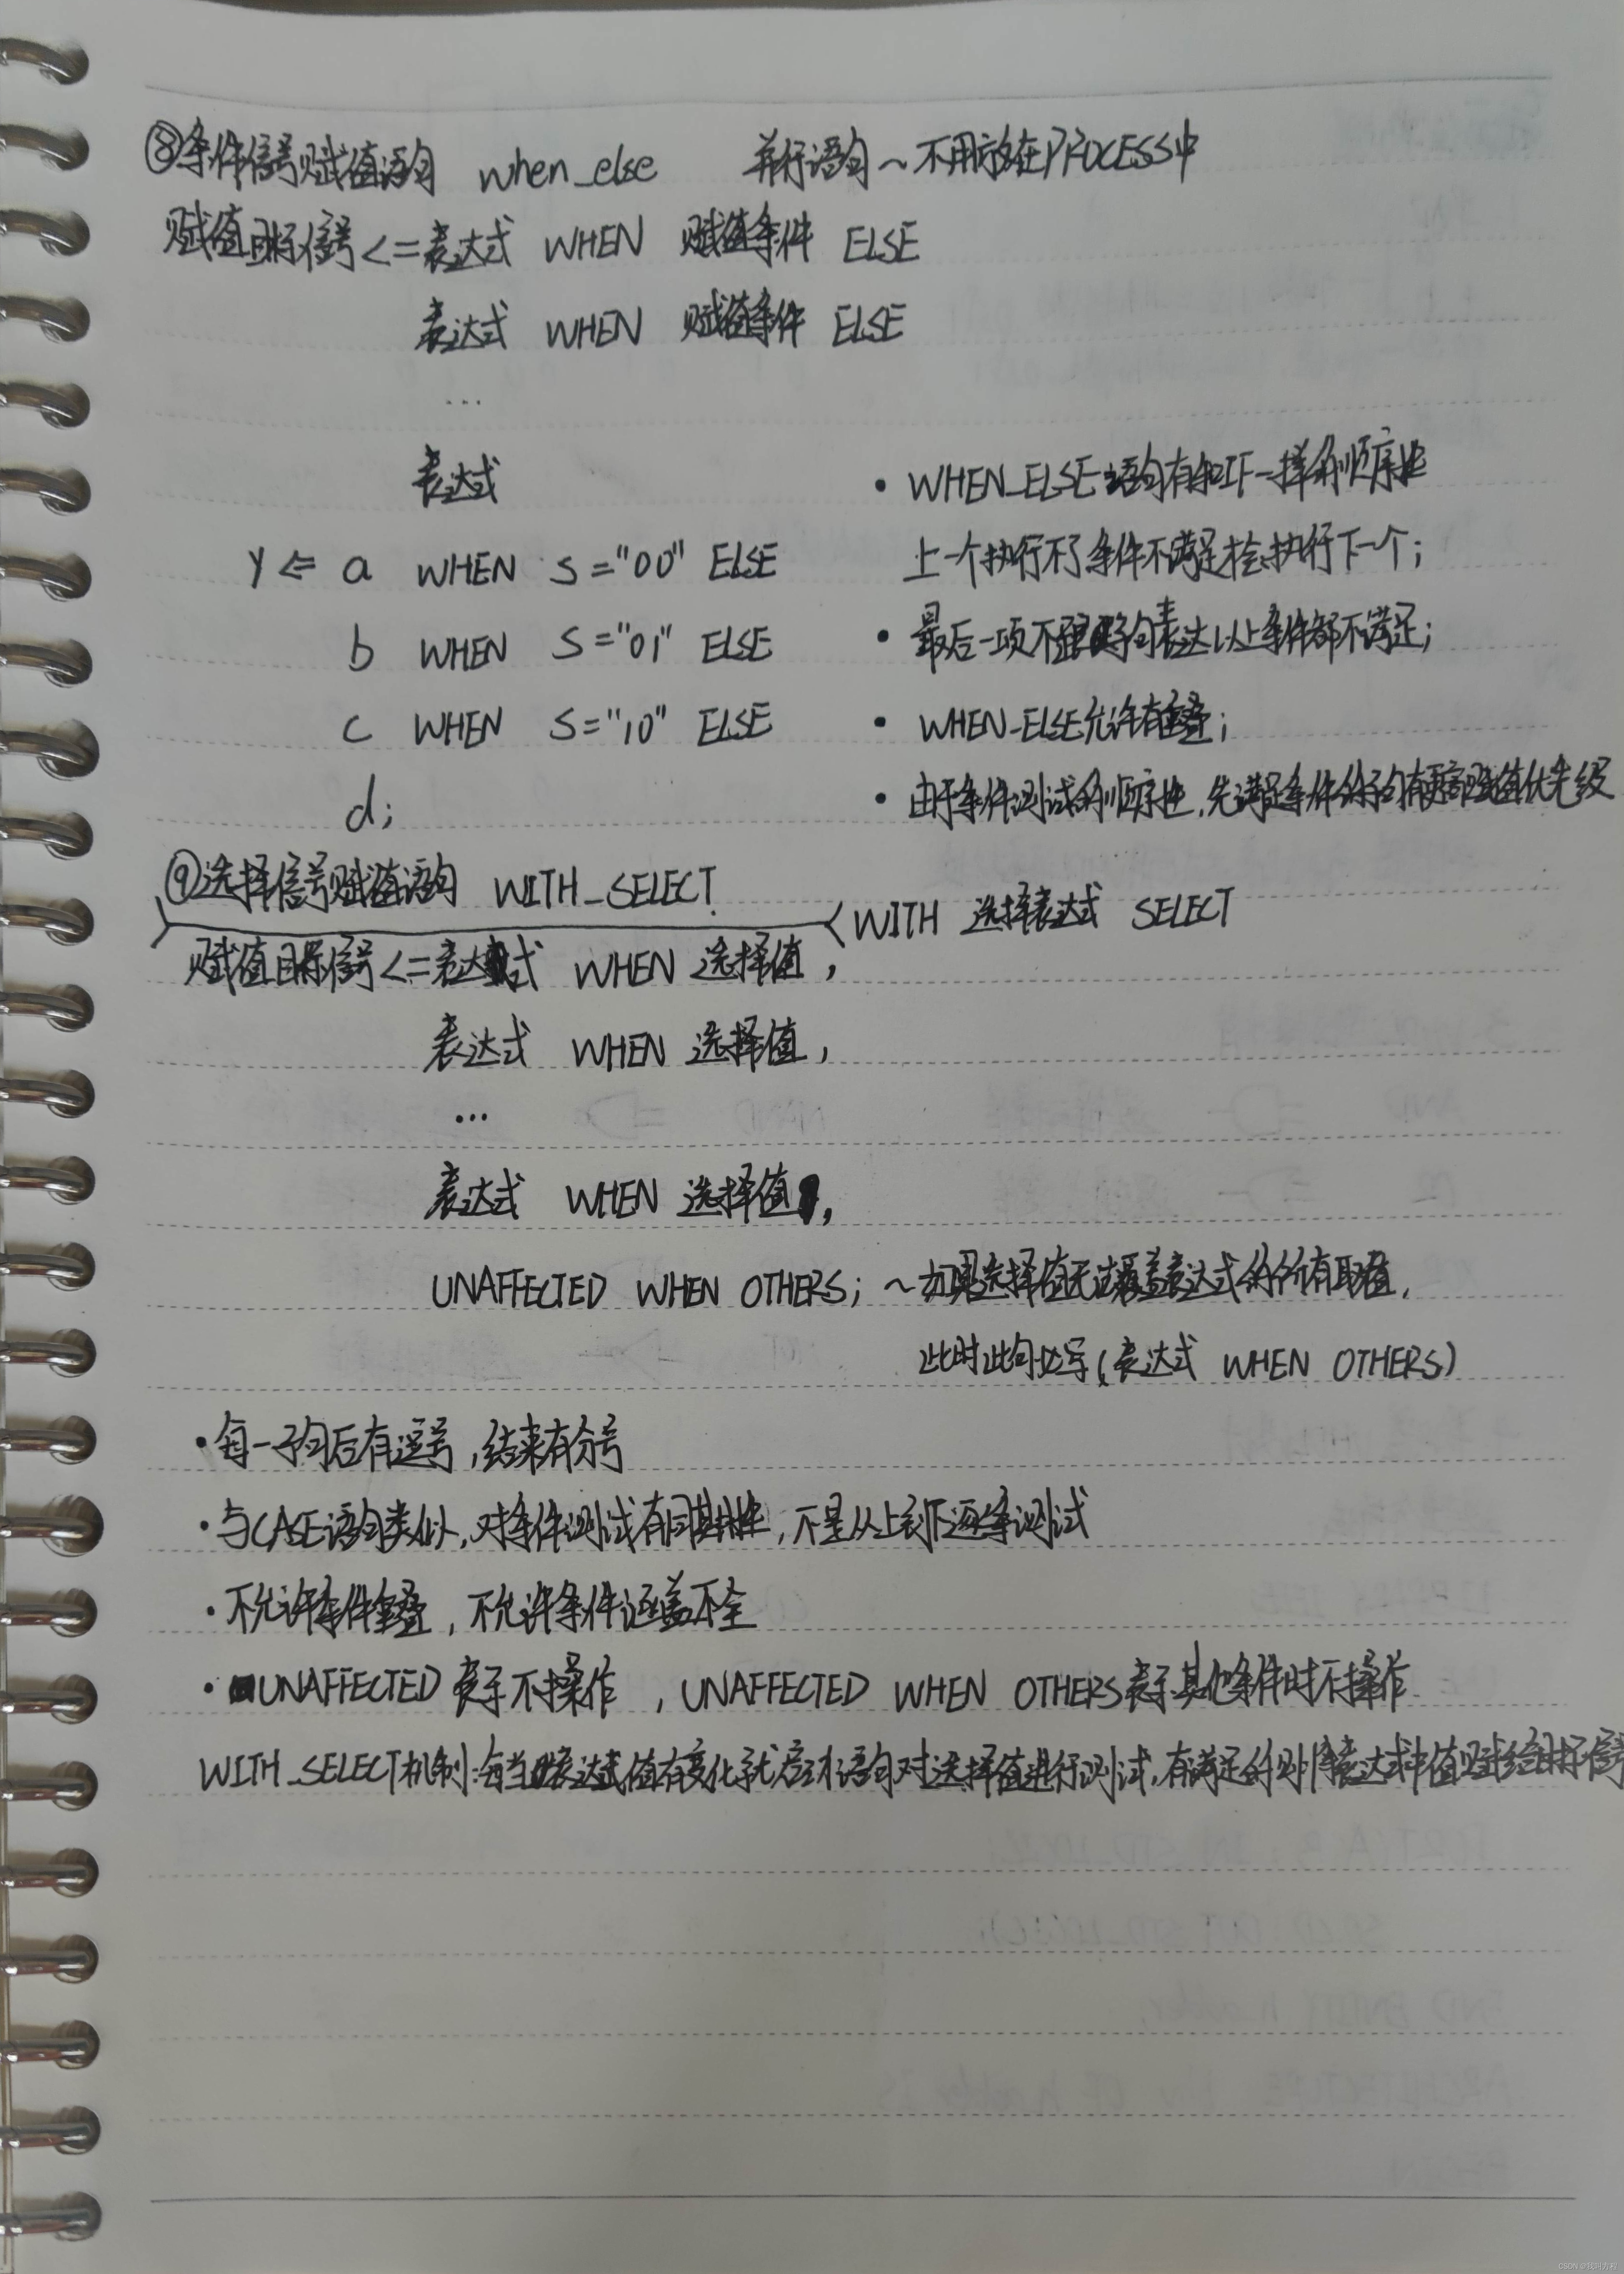 ⑧条件信号赋值语句 when_else 并行语句~不用放在PROCESS中
赋值目标信号<=表达式 WHEN 赋值条件 ELSE
表达式 WHEN 赋值条件 ELSE
...
表达式
y <= a WHEN s="00" ELSE
b WHEN s="01" ELSE
c WHEN s="10" ELSE
d;
• WHEN_ELSE语句有和IF一样的顺序性
上一个执行不了条件不满足才会执行下一个;
• 最后一项不跟子句表达以上条件都不满足;
• WHEN_ELSE允许有重叠;
• 由于条件测试的顺序性,先满足条件的子句有更高赋值优先级
⑨选择信号赋值语句 WITH_SELECT
WITH 选择表达式 SELECT
赋值目标信号<=表达式 WHEN 选择值,
表达式 WHEN 选择值,
...
表达式 WHEN 选择值,
UNAFFECTED WHEN OTHERS; ~如果选择值无法覆盖表达式的所有取值,
此时此句必写(表达式 WHEN OTHERS)
•每一子句后有逗号,结束有分号
•与CASE语句类似,对条件测试有同期性,不是从上到下逐条测试
•不允许条件重叠,不允许条件涵盖不全
•UNAFFECTED表示不操作,UNAFFECTED WHEN OTHERS表示其他条件时不操作
WITH_SELECT机制:每当表达式值有变化就启动语句对选择值进行测试,有满足的则将表达式中值赋给目标信号
CSDN